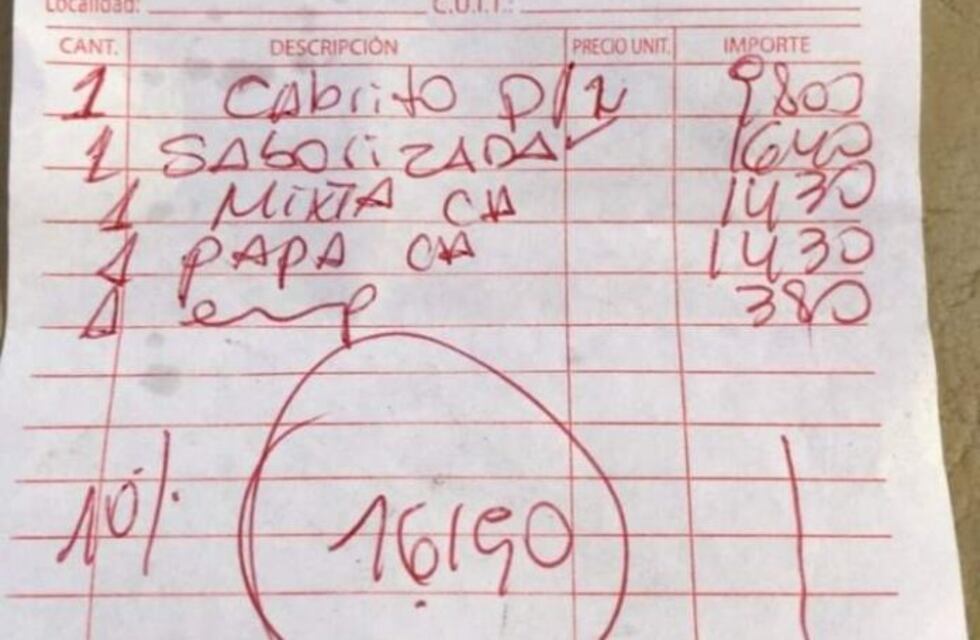 Localidad: C.U.I.T.:
CANT. DESCRIPCIÓN PRECIO UNIT. IMPORTE
1 CAbrito p/2 9800
1 SAboriZADA 1640
1 MIXTA CA 1430
1 PAPA CA 1430
1 emp 380
10%
16190